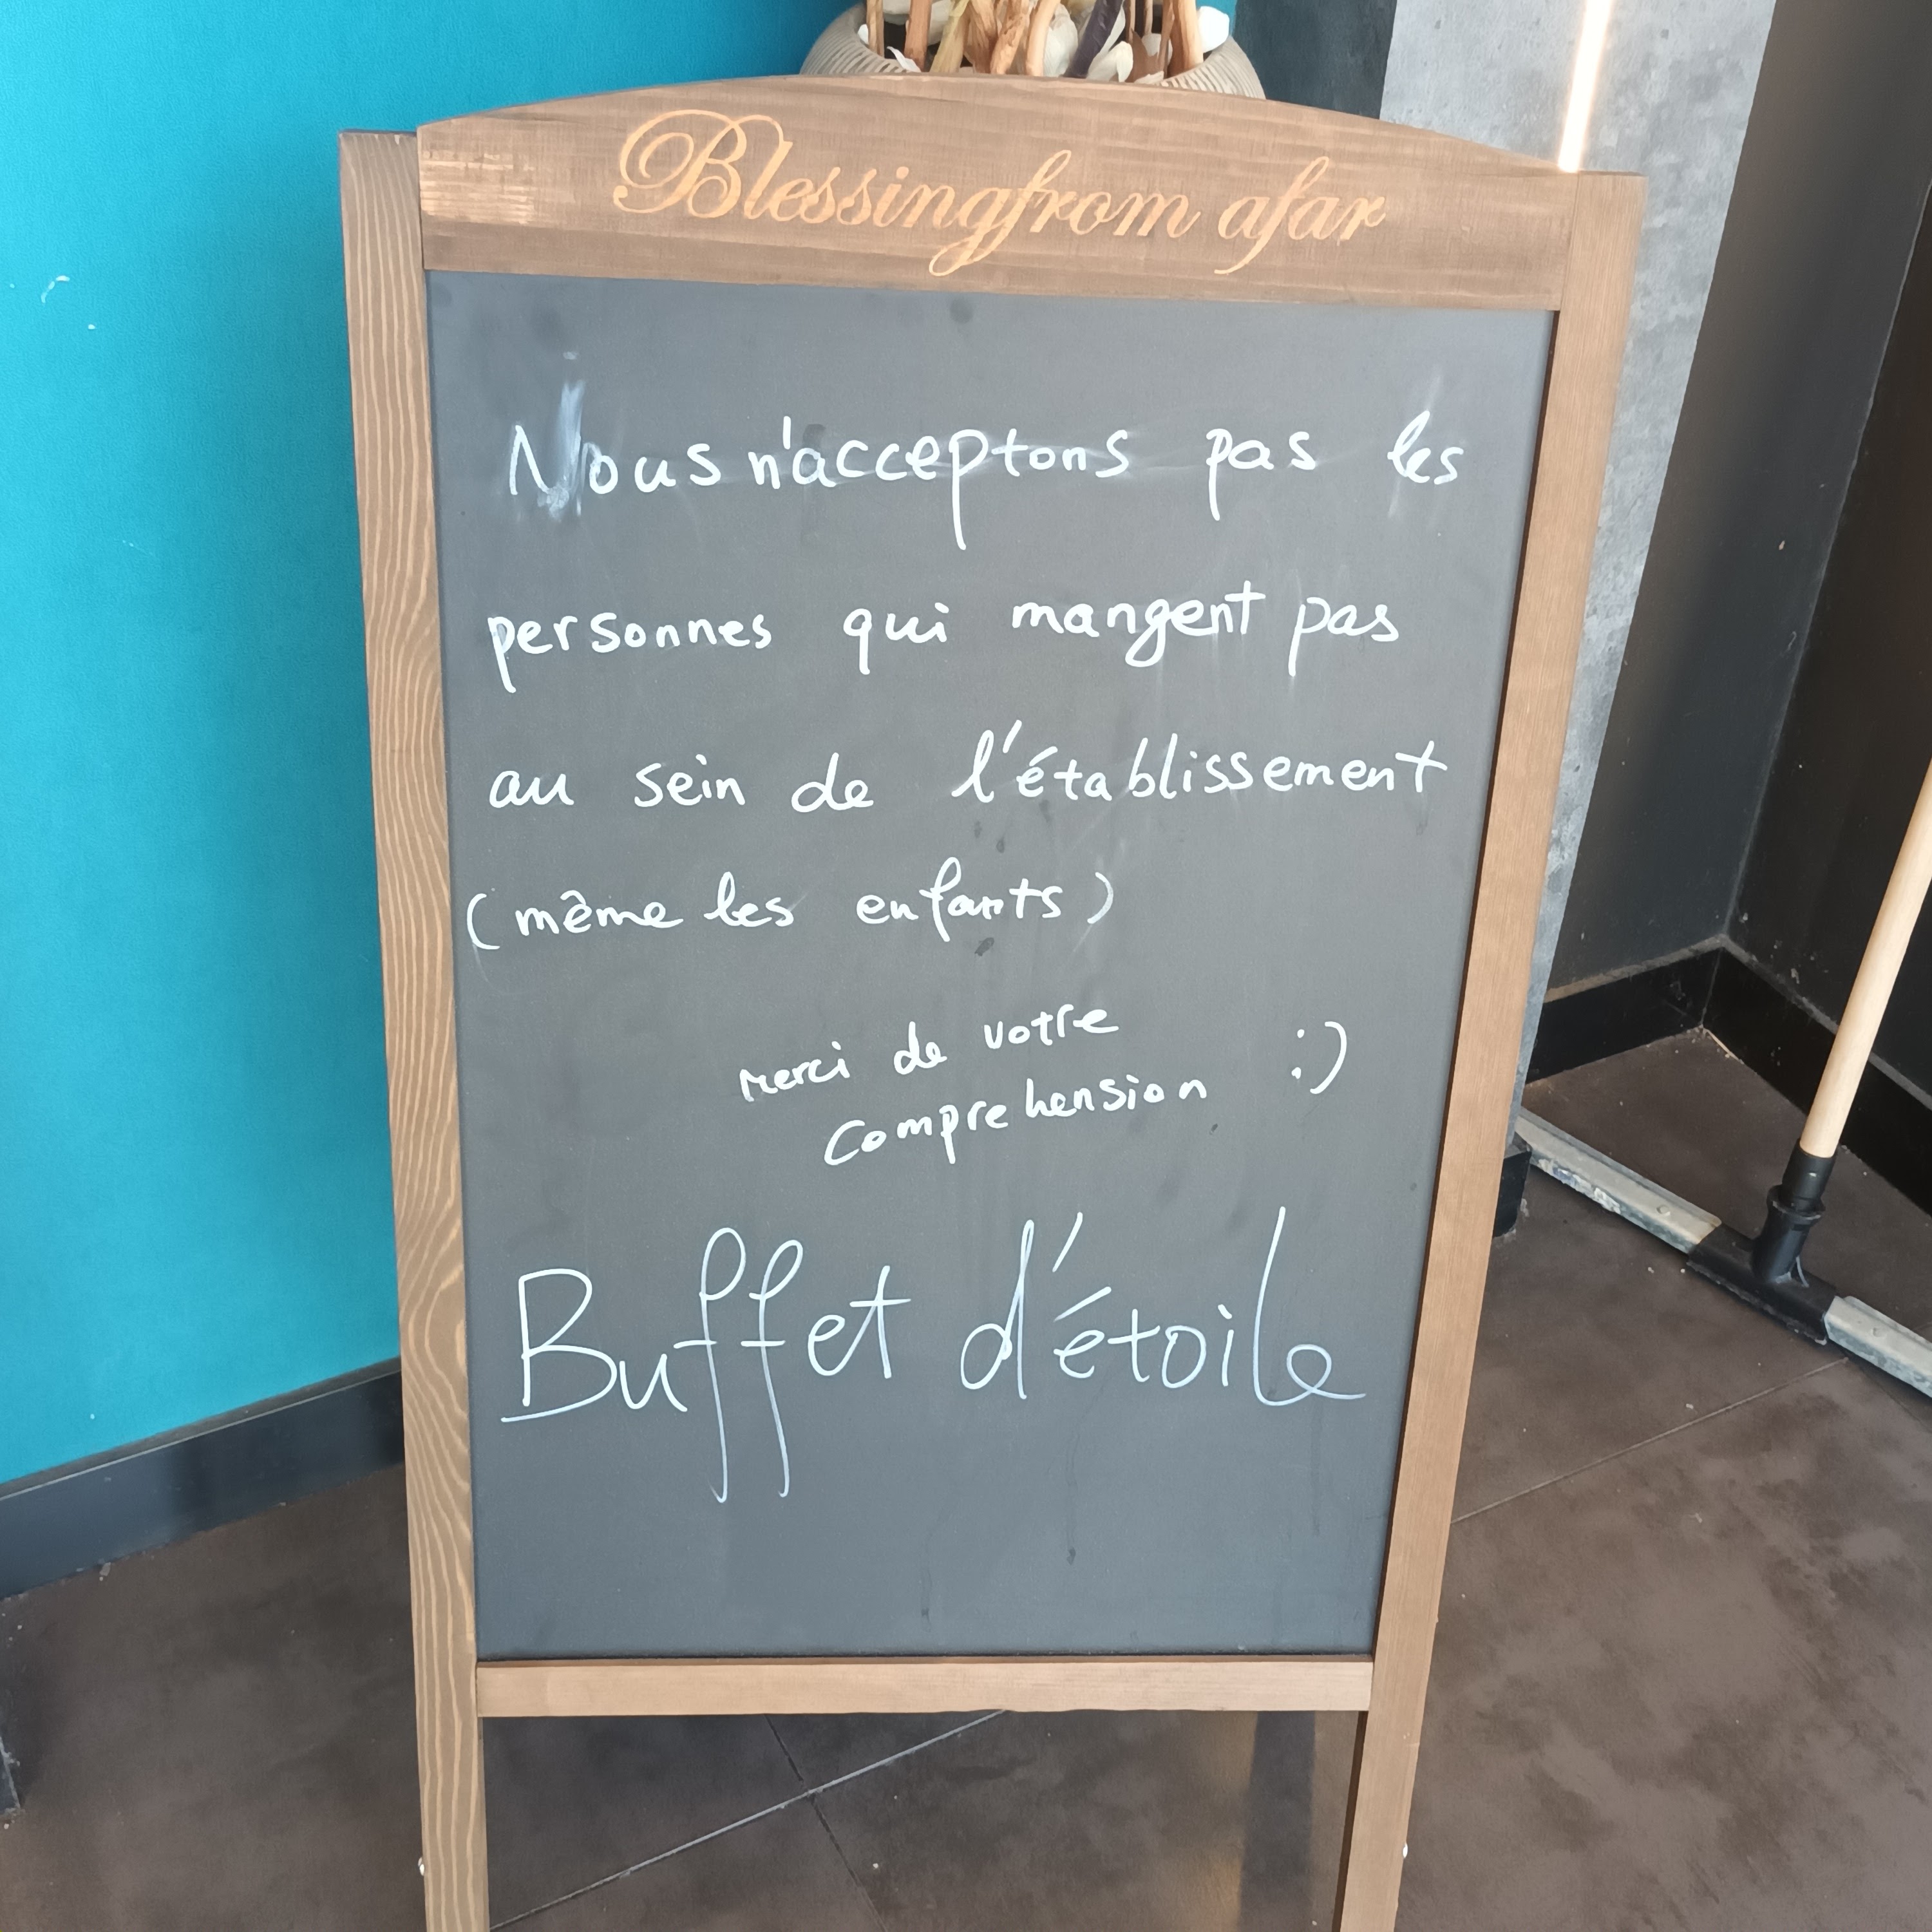 Blessingfrom afar
Nous n'acceptons pas les
personnes qui mangent pas
au sein de l'établissement
(même les enfants)
merci de votre :)
comprehension
Buffet d'étoile